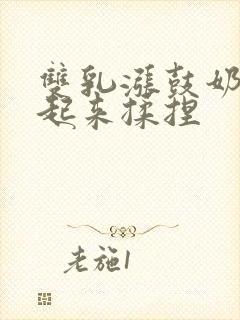 雙乳漲鼓奶
起来揉捏
老施1